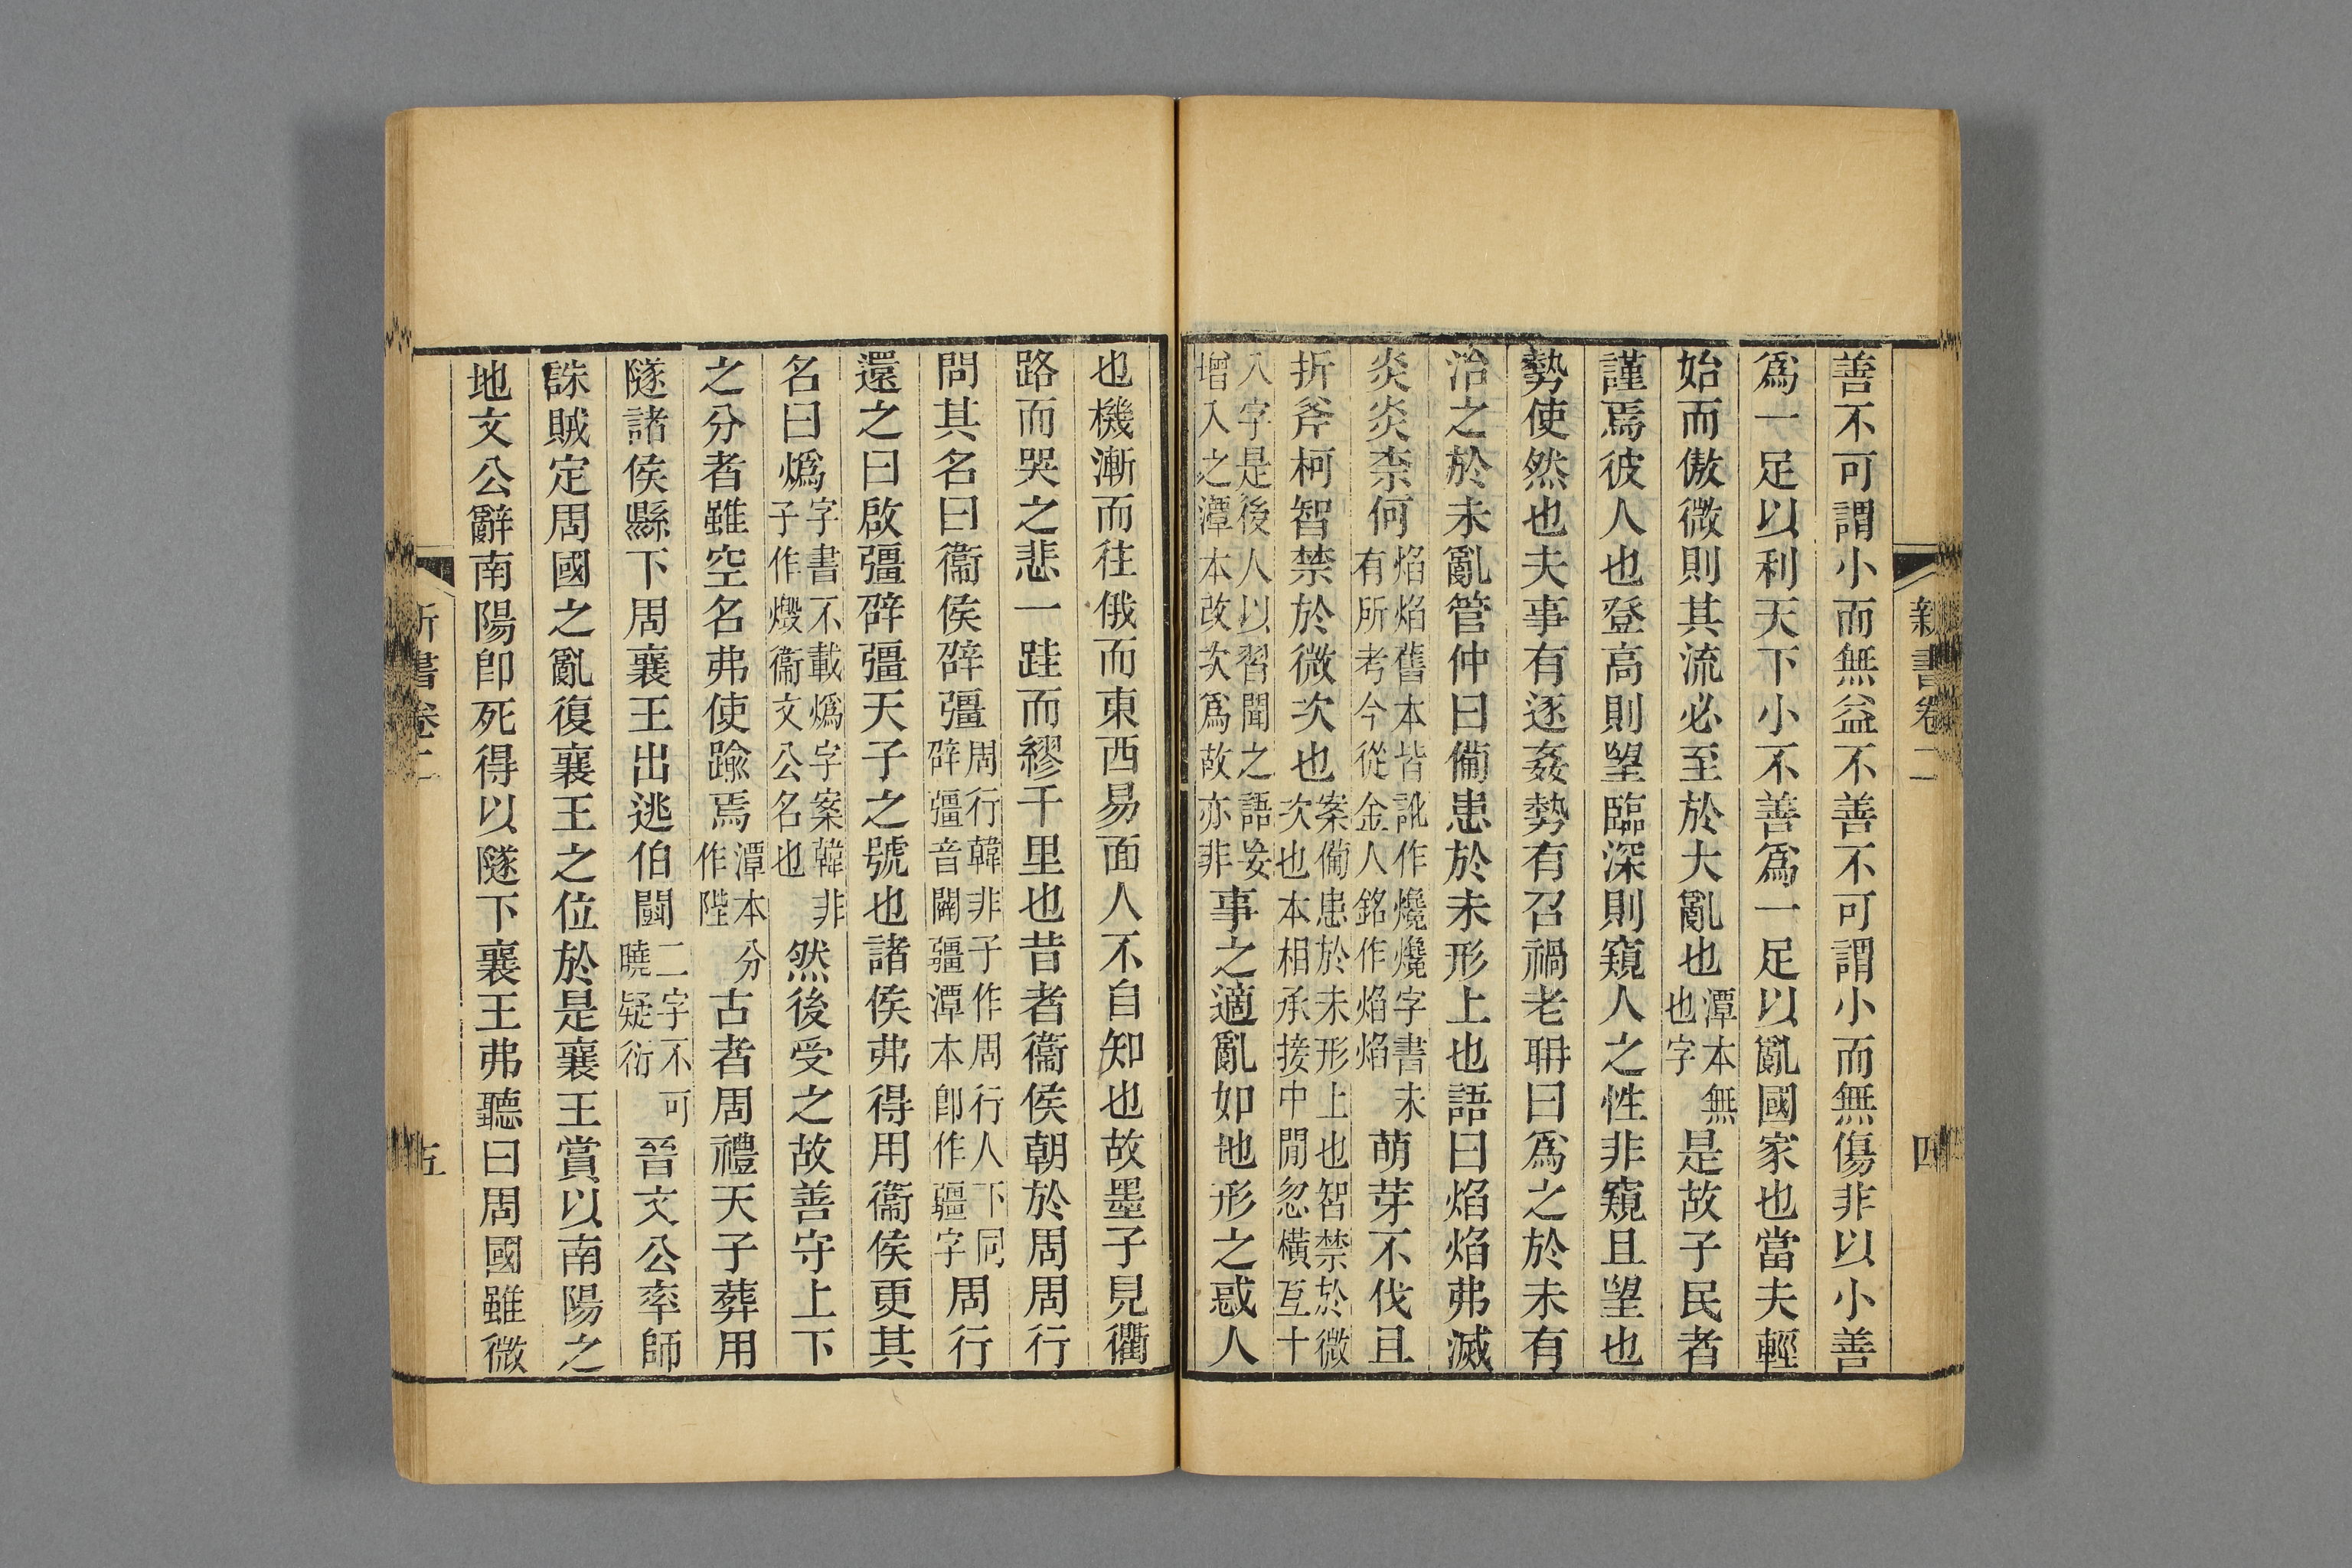 新書卷二
四
善不可謂小而無益不善不可謂小而無傷非以小善
爲一足以利天下小不善爲一足以亂國家也當夫輕
始而傲微則其流必至於大亂也潭本無也字是故子民者
謹焉彼人也登高則望臨深則窺人之性非窺且望也
勢使然也夫事有逐姦勢有召禍老耼曰爲之於未有
治之於未亂管仲曰備患於未形上也語曰焰焰弗滅
炎炎柰何焰焰舊本皆訛作爁爁字書未有所考今從金人銘作焰焰萌芽不伐且
折斧柯智禁於微次也案備患於未形上也智禁於微次也本相承接中閒忽橫亙十
入字是後人以習聞之語妄增入之潭本改次爲故亦非事之適亂如地形之惑人
也機漸而往俄而東西易面人不自知也故墨子見衢
路而哭之悲一跬而繆千里也昔者衞侯朝於周周行
問其名曰衞侯辟彊周行韓非子作周行人下同辟彊音闢疆潭本卽作疆字周行
還之曰啟彊辟彊天子之號也諸侯弗得用衞侯更其
名曰燬字書不載燬字案韓非子作燬衞文公名也然後受之故善守上下
之分者雖空名弗使踰焉潭本分作陛古者周禮天子葬用
隧諸侯縣下周襄王出逃伯鬭二字不可曉疑衍晉文公率師
誅賊定周國之亂復襄王之位於是襄王賞以南陽之
地文公辭南陽卽死得以隧下襄王弗聽曰周國雖微
新書卷二
五